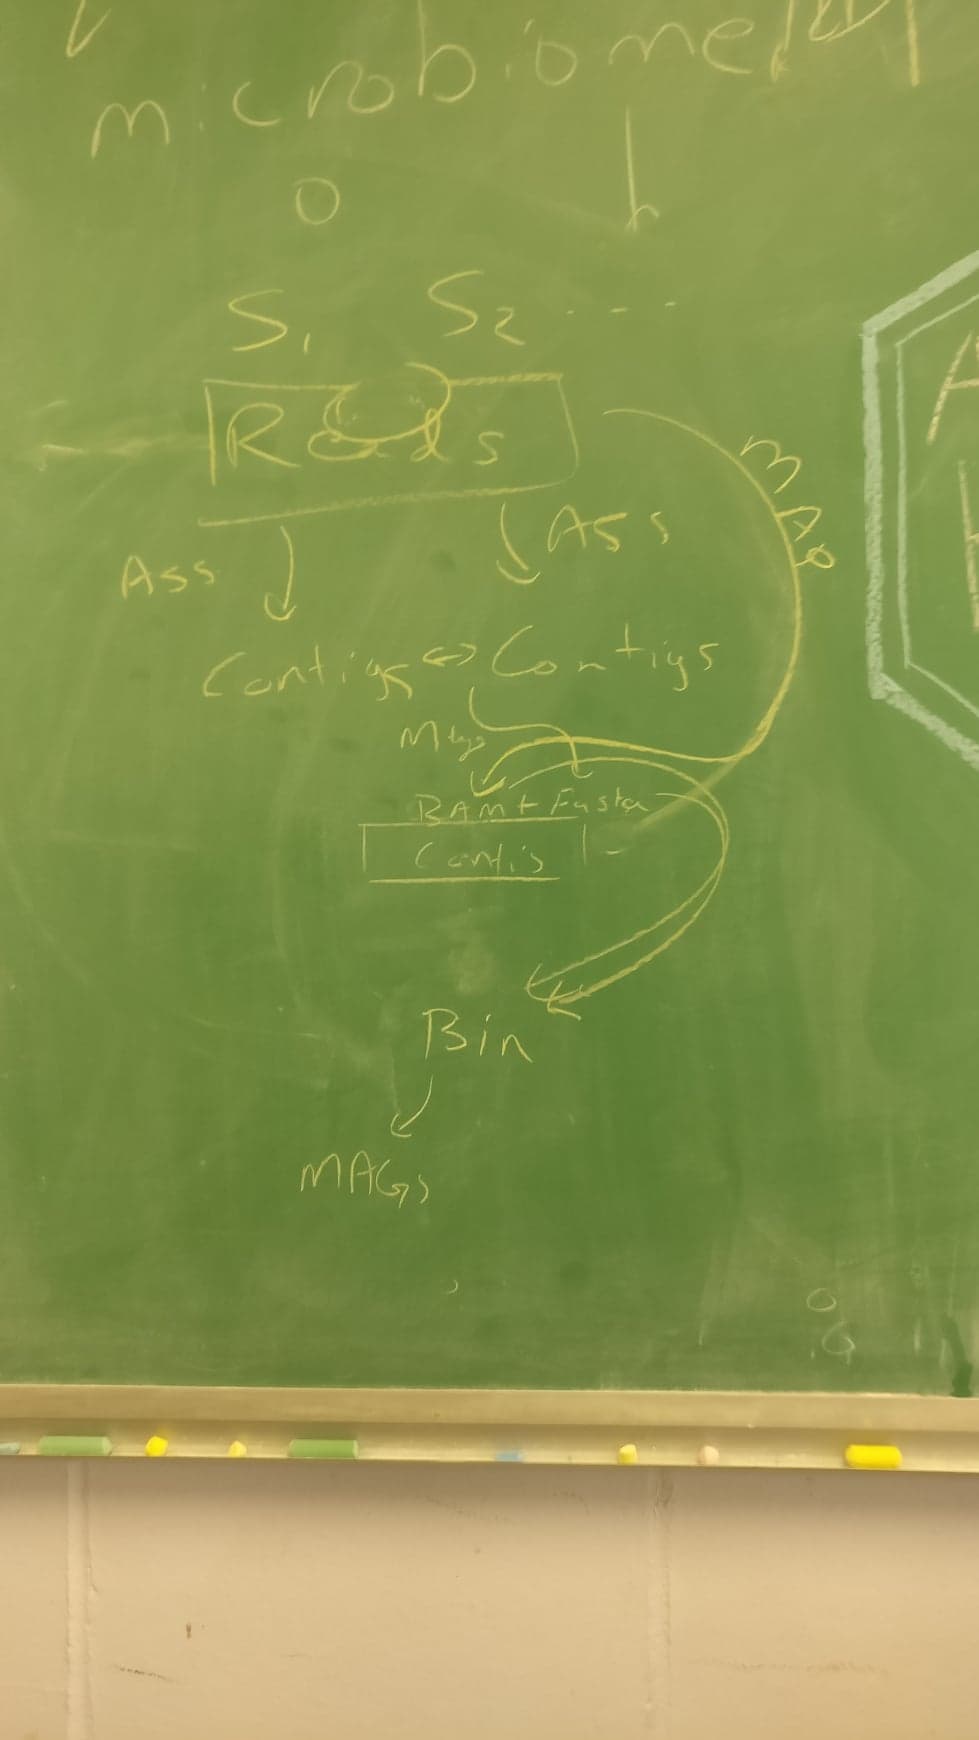 microbiome
S1 S2 ...
Reads
MAP
Ass Ass
Contigs ↔ Contigs
BAM + Fasta
Contis
Bin
MAGs